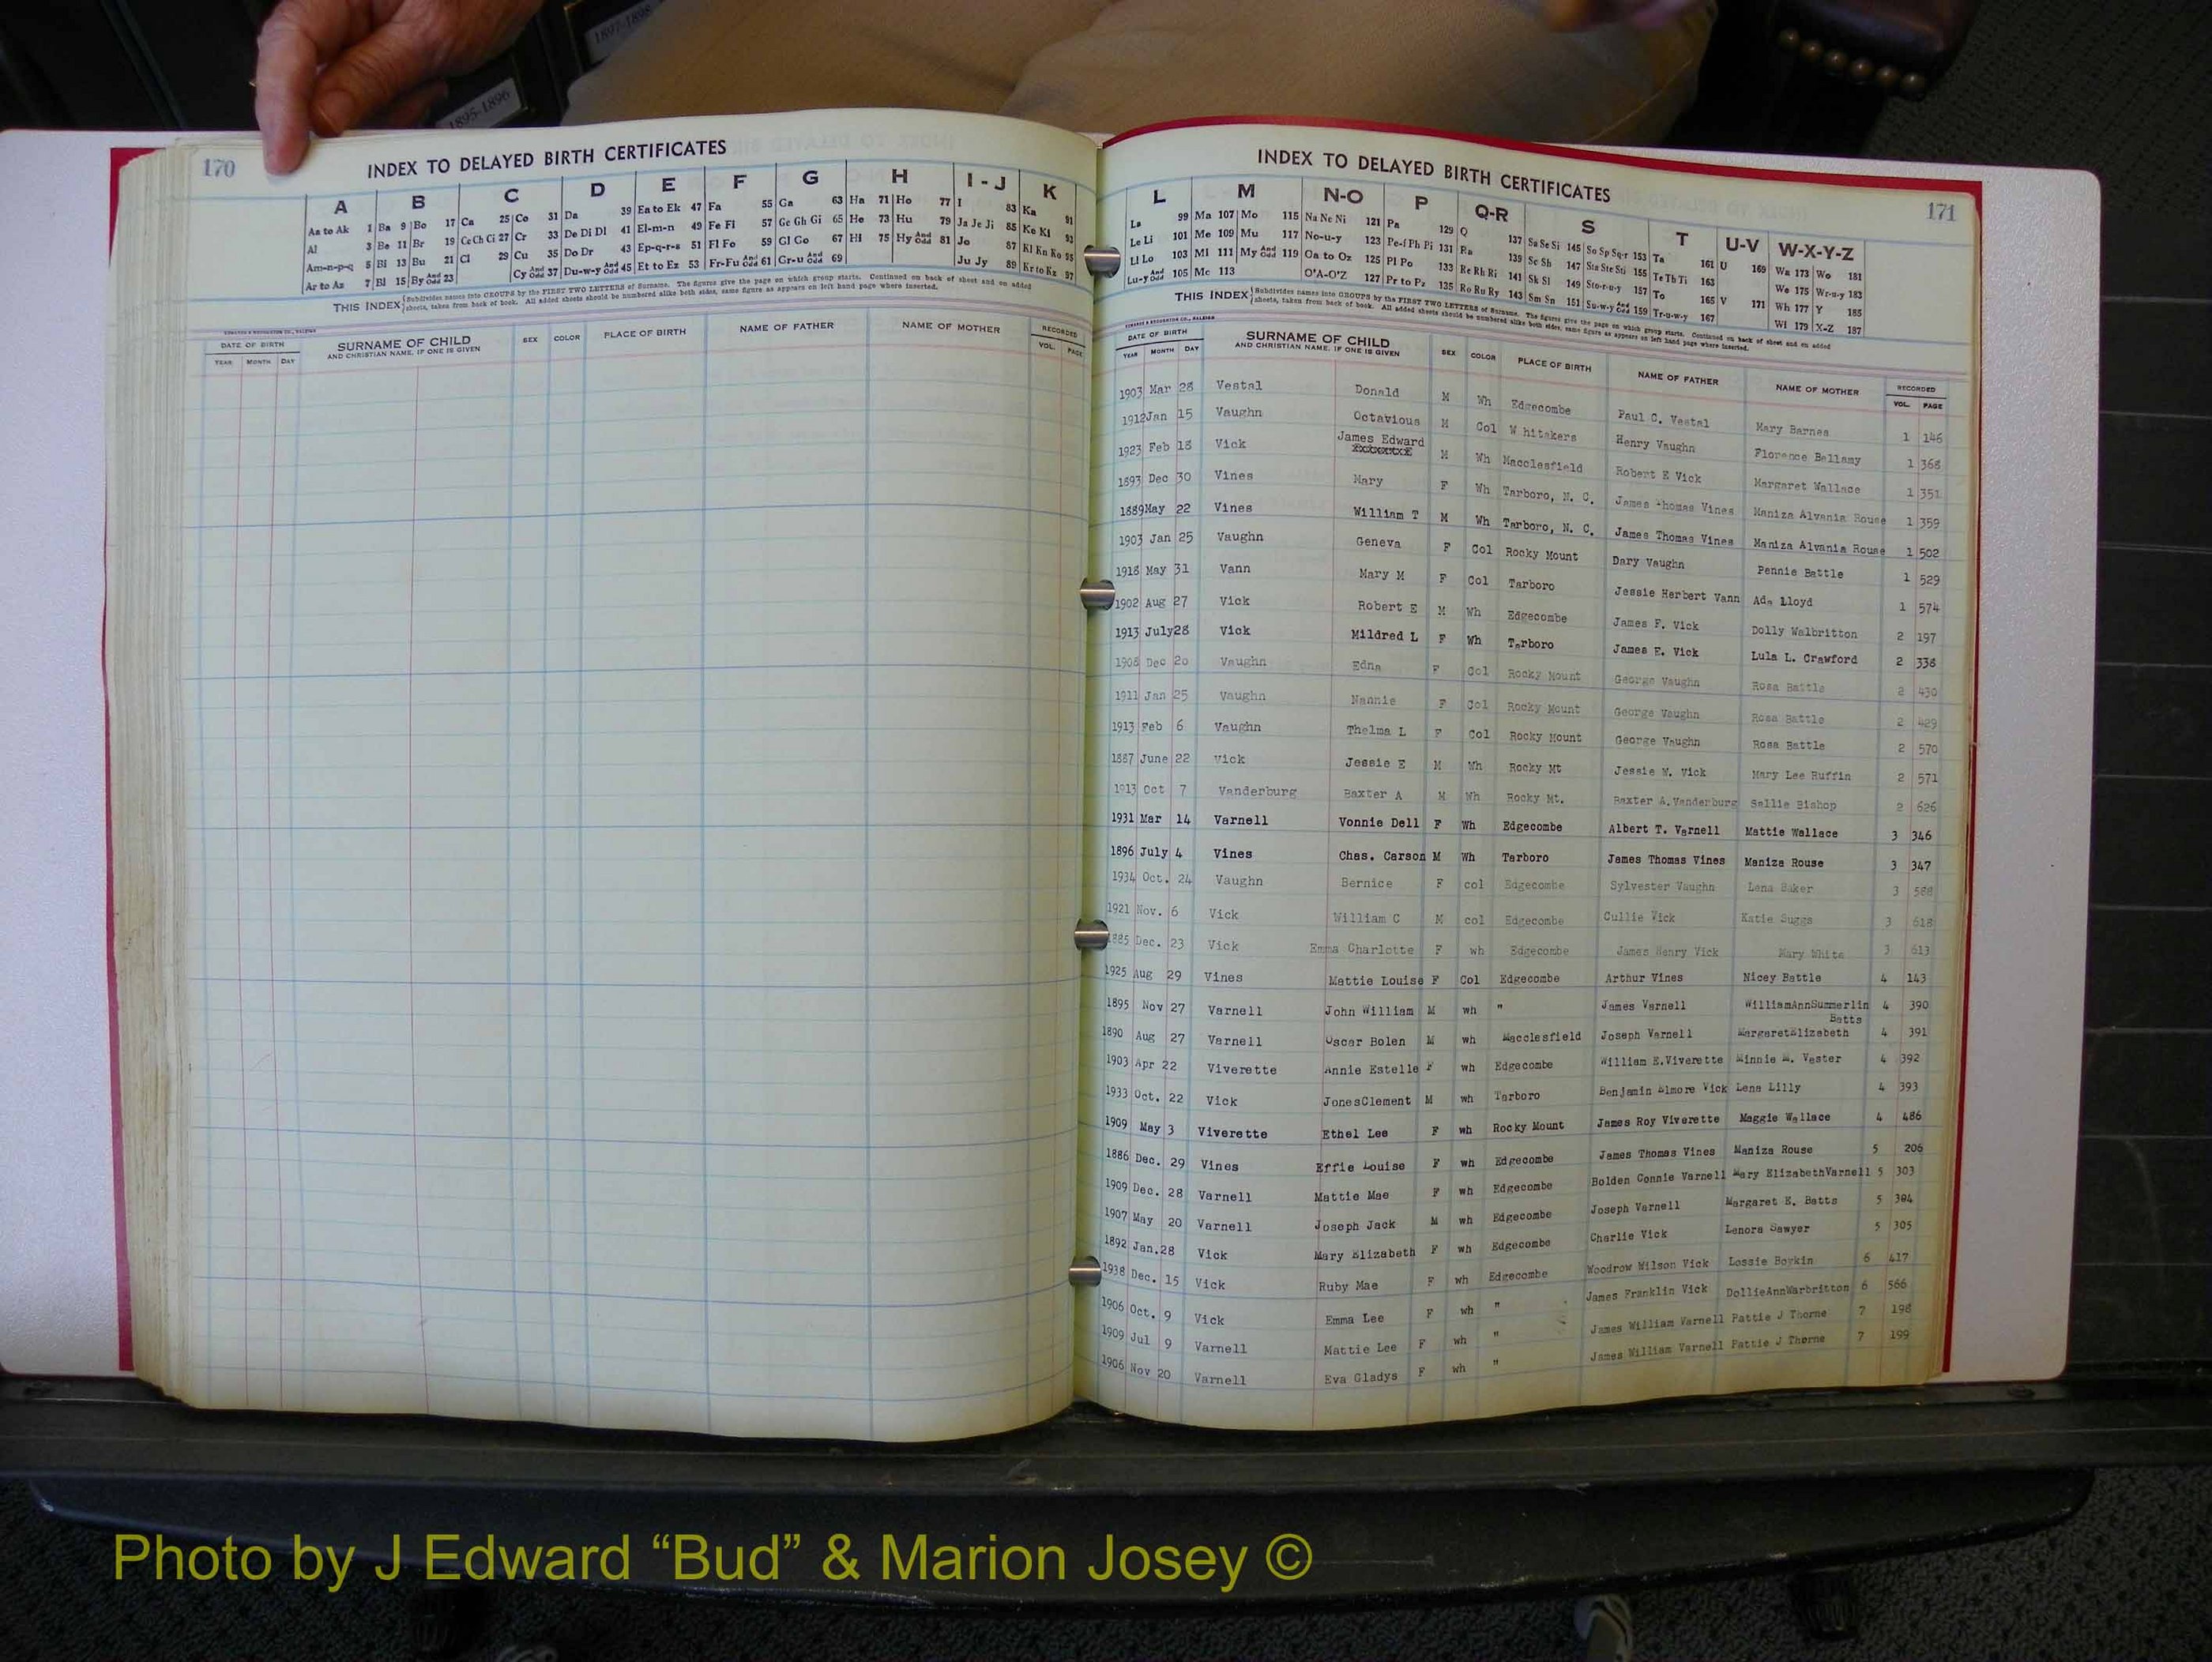 1897-1898
1895-1896
170
INDEX TO DELAYED BIRTH CERTIFICATES
A B C D E F G H I - J K
Aa to Ak 1 Ba 9 Bo 17 Ca 25 Co 31 Da 39 Ea to Ek 47 Fa 55 Ga 63 Ha 71 Ho 77 I 83 Ka 91
Al 3 Be 11 Br 19 Ce Ch Ci 27 Cr 33 De Di Dl 41 El-m-n 49 Fe Fl 57 Ge Gh Gi 65 He 73 Hu 79 Ja Je Ji 85 Ke Kl 93
Am-n-p-q 5 Bi 13 Bu 21 Cl 29 Cu 35 Do Dr 43 Ep-q-r-s 51 Fl Fo 59 Gl Go 67 Hi 75 Hy And Odd 81 Jo 87 Kl Kn Ko 95
Ar to Az 7 Bl 15 By And Odd 23 Cy And Odd 37 Du-w-y And Odd 45 Et to Ez 53 Fr-Fu And Odd 61 Gr-u And Odd 69 Ju Jy 89 Kr to Kz 97
THIS INDEX Subdivides names into GROUPS by the FIRST TWO LETTERS of Surname. The figures give the page on which group starts. Continued on back of sheet and on added
sheets, taken from back of book. All added sheets should be numbered alike both sides, same figure as appears on left hand page where inserted.
EDWARDS & BROUGHTON CO., RALEIGH
DATE OF BIRTH SURNAME OF CHILD SEX COLOR PLACE OF BIRTH NAME OF FATHER NAME OF MOTHER RECORDED
YEAR MONTH DAY AND CHRISTIAN NAME, IF ONE IS GIVEN VOL. PAGE
INDEX TO DELAYED BIRTH CERTIFICATES
171
L M N-O P Q-R S T U-V W-X-Y-Z
La 99 Ma 107 Mo 115 Na Ne Ni 121 Pa 129 Q 137 Sa Se Si 145 So Sp Sq-r 153 Ta 161 U 169 Wa 173 Wo 181
Le Li 101 Me 109 Mu 117 No-u-y 123 Pe-f Ph Pi 131 Ra 139 Sc Sh 147 Sta Ste Sti 155 Te Th Ti 163 We 175 Wr-u-y 183
Ll Lo 103 Mi 111 My And Odd 119 Oa to Oz 125 Pl Po 133 Re Rh Ri 141 Sk Sl 149 Sto-r-u-y 157 To 165 V 171 Wh 177 Y 185
Lu-y And Odd 105 Mc 113 O'A-O'Z 127 Pr to Pz 135 Ro Ru Ry 143 Sm Sn 151 Su-w-y And Odd 159 Tr-u-w-y 167 Wi 179 X-Z 187
THIS INDEX Subdivides names into GROUPS by the FIRST TWO LETTERS of Surname. The figures give the page on which group starts. Continued on back of sheet and on added
sheets, taken from back of book. All added sheets should be numbered alike both sides, same figure as appears on left hand page where inserted.
EDWARDS & BROUGHTON CO., RALEIGH
DATE OF BIRTH SURNAME OF CHILD SEX COLOR PLACE OF BIRTH NAME OF FATHER NAME OF MOTHER RECORDED
YEAR MONTH DAY AND CHRISTIAN NAME, IF ONE IS GIVEN VOL. PAGE
1903 Mar 28 Vestal Donald M Wh Edgecombe Paul C. Vestal Mary Barnes 1 146
1912 Jan 15 Vaughn Octavious M Col W hitakers Henry Vaughn Florence Bellamy 1 368
1923 Feb 18 Vick James Edward M Wh Macclesfield Robert E Vick Margaret Wallace 1 351
1893 Dec 30 Vines Mary F Wh Tarboro, N. C. James Thomas Vines Maniza Alvania Rouse 1 359
1889 May 22 Vines William T M Wh Tarboro, N. C. James Thomas Vines Maniza Alvania Rouse 1 502
1903 Jan 25 Vaughn Geneva F Col Rocky Mount Dary Vaughn Pennie Battle 1 529
1918 May 31 Vann Mary M F Col Tarboro Jessie Herbert Vann Ada Lloyd 1 574
1902 Aug 27 Vick Robert E M Wh Edgecombe James F. Vick Dolly Walbritton 2 197
1913 July 28 Vick Mildred L F Wh Tarboro James E. Vick Lula L. Crawford 2 338
1908 Dec 20 Vaughn Edna F Col Rocky Mount George Vaughn Rosa Battle 2 430
1911 Jan 25 Vaughn Nannie F Col Rocky Mount George Vaughn Rosa Battle 2 429
1913 Feb 6 Vaughn Thelma L F Col Rocky Mount George Vaughn Rosa Battle 2 570
1887 June 22 Vick Jessie E M Wh Rocky Mt Jessie W. Vick Mary Lee Ruffin 2 571
1913 Oct 7 Vanderburg Baxter A M Wh Rocky Mt. Baxter A. Vanderburg Sallie Bishop 2 626
1931 Mar 14 Varnell Vonnie Dell F Wh Edgecombe Albert T. Varnell Mattie Wallace 3 346
1896 July 4 Vines Chas. Carson M Wh Tarboro James Thomas Vines Maniza Rouse 3 347
1934 Oct. 24 Vaughn Bernice F col Edgecombe Sylvester Vaughn Lena Baker 3 588
1921 Nov. 6 Vick William C M col Edgecombe Cullie Vick Katie Suggs 3 618
1885 Dec. 23 Vick Emma Charlotte F wh Edgecombe James Henry Vick Mary White 3 613
1925 Aug 29 Vines Mattie Louise F Col Edgecombe Arthur Vines Nicey Battle 4 143
1895 Nov 27 Varnell John William M wh " James Varnell WilliamAnnSummerlin 4 390
Batts
1890 Aug 27 Varnell Oscar Bolen M wh Macclesfield Joseph Varnell MargaretElizabeth 4 391
1903 Apr 22 Viverette Annie Estelle F wh Edgecombe William E.Viverette Minnie M. Vester 4 392
1933 Oct. 22 Vick JonesClement M wh Tarboro Benjamin Elmore Vick Lena Lilly 4 393
1909 May 3 Viverette Ethel Lee F wh Rocky Mount James Roy Viverette Maggie Wallace 4 486
1886 Dec. 29 Vines Effie Louise F wh Edgecombe James Thomas Vines Maniza Rouse 5 206
1909 Dec. 28 Varnell Mattie Mae F wh Edgecombe Bolden Connie Varnell Mary ElizabethVarnell 5 303
1907 May 20 Varnell Joseph Jack M wh Edgecombe Joseph Varnell Margaret E. Batts 5 304
1892 Jan.28 Vick Mary Elizabeth F wh Edgecombe Charlie Vick Lenora Sawyer 5 305
1938 Dec. 15 Vick Ruby Mae F wh Edgecombe Woodrow Wilson Vick Lossie Boykin 6 417
1906 Oct. 9 Vick Emma Lee F wh " James Franklin Vick DollieAnnWarbritton 6 566
1909 Jul 9 Varnell Mattie Lee F wh " James William Varnell Pattie J Thorne 7 198
1906 Nov 20 Varnell Eva Gladys F wh " James William Varnell Pattie J Thorne 7 199
Photo by J Edward “Bud” & Marion Josey ©